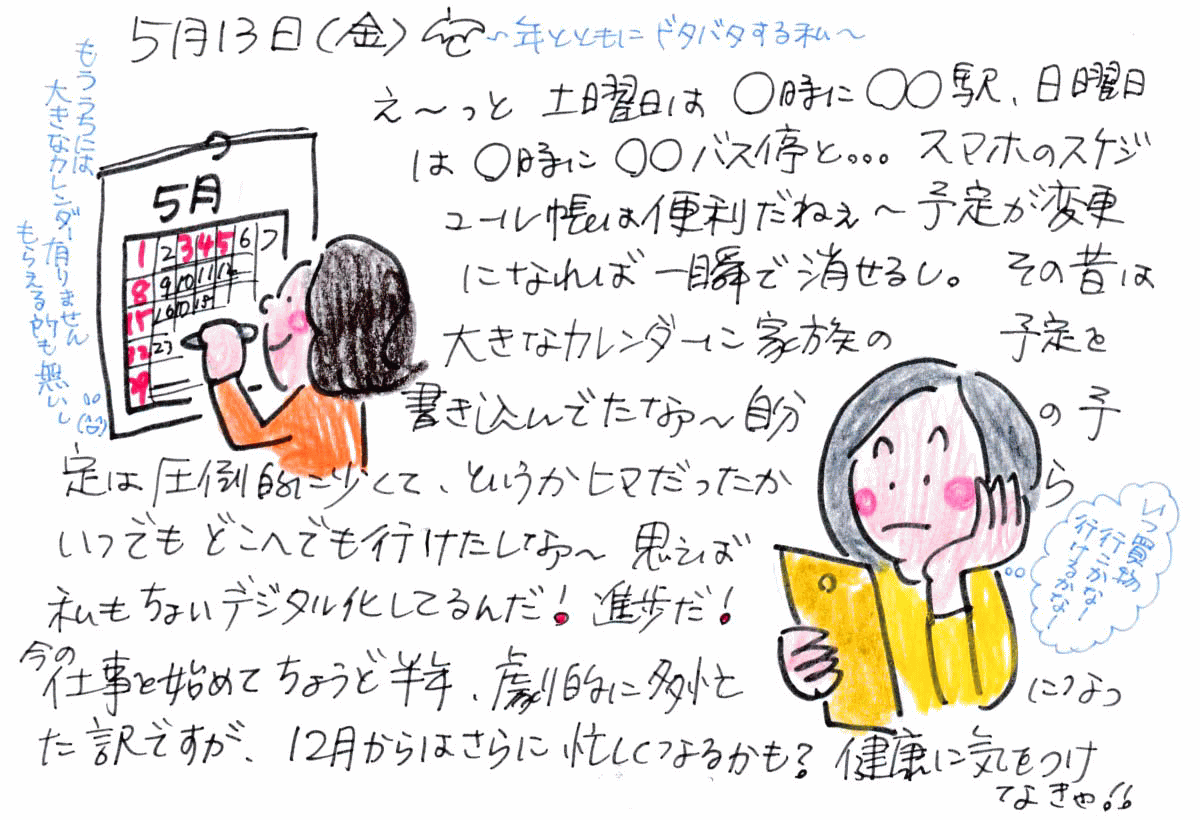 5月13日(金)
〜年とともにドタバタする私〜
え〜っと 土曜日は ○時に ○○駅、日曜日
は ○時に ○○バス停と... スマホのスケジ
ュール帳は便利だねぇ〜予定が変更
になれば 一瞬で消せるし。 その昔は
大きなカレンダーに家族の 予定を
書き込んでたなァ〜自分 の予
定は圧倒的に少くて、というかヒマだったか ら
いつでも どこへでも行けたしなァ〜 思えば
私もちょいデジタル化してるんだ! 進歩だ!
今の仕事を始めて ちょうど半年、劇的に多忙と になっ
た訳ですが、12月からはさらに忙しくなるかも? 健康に気をつけ
てよきゃ!!
もううちには
大きなカレンダー有りません
もらえる所も無いし
(笑)
5月
1 2 3 4 5 6 7
8 9 10 11 12
15 16 17 18
22 23
29
いつ買物
行こかな!
行けるかな!